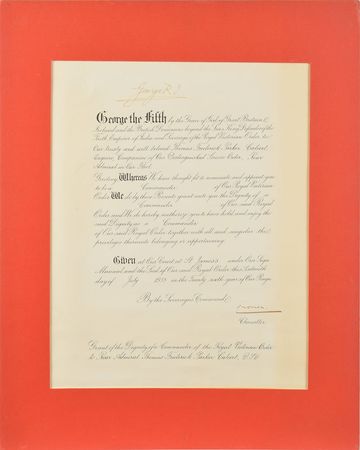 George R.I.
George the Fifth by the Grace of God, of Great Britain &
Ireland and the British Dominions beyond the Seas King, Defender of the
Faith Emperor of India and Sovereign of the Royal Victorian Order, to
Our trusty and well beloved Thomas Frederick Parker Calvert,
Esquire Companion of Our Distinguished Service Order, Rear
Admiral in Our Fleet
Greeting Whereas We have thought fit to nominate and appoint you
to be a Commander of Our Royal Victorian
Order We do by these Presents grant unto you the Dignity of a
Commander of Our said Royal
Order and We do hereby authorize you to have hold and enjoy the
said Dignity as a Commander
of Our said Royal Order together with all and singular the
privileges thereunto belonging or appertaining.
Given at Our Court at St. James's under Our Sign
Manual and the Seal of Our said Royal Order this
day of July 1935 in the Twenty sixth year of Our Reign
By the Sovereign's Command,
Cromer
Chancellor
Grant of the Dignity of a Commander of the Royal Victorian Order
to Rear Admiral Thomas Frederick Parker Calvert, D.S.O.